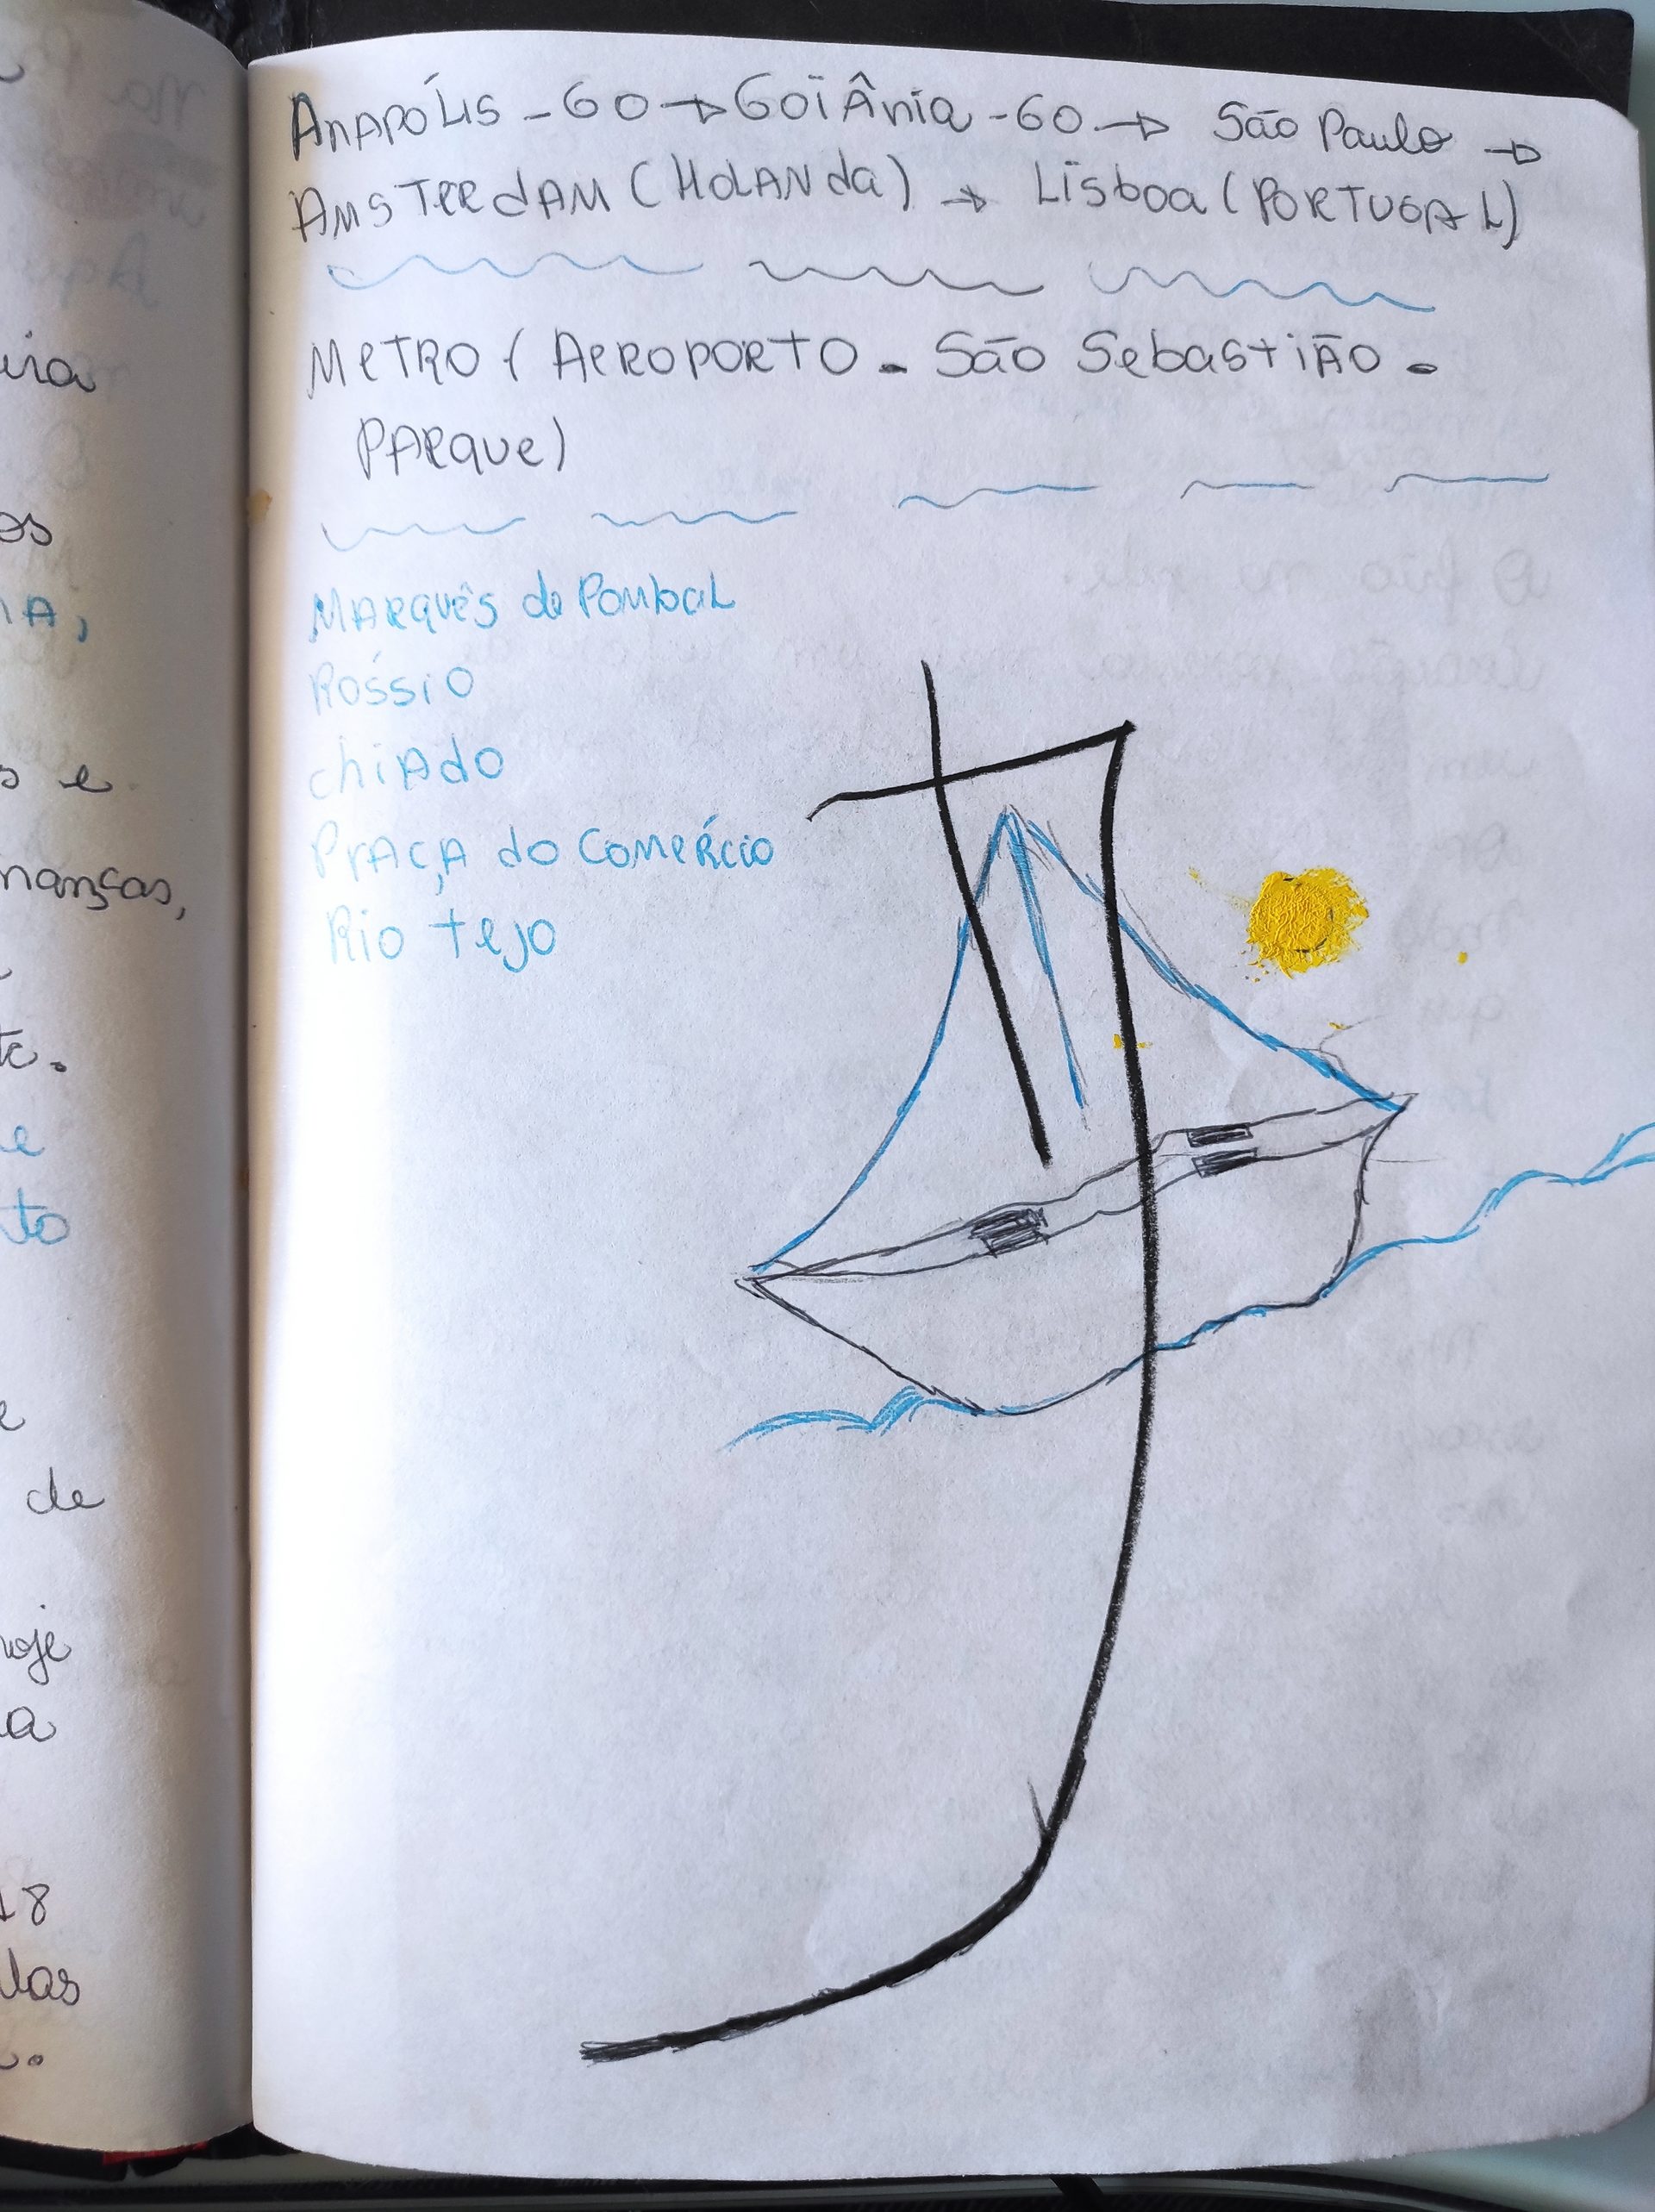 ira
os
s e
nanças,
tc.
e
to
e
de
hoje
a
18
las
ANAPÓLIS - GO → GOIÂNIA - GO → São Paulo →
AMSTERDAM (HOLANDA) → Lisboa (PORTUGAL)
METRO ( AEROPORTO - São SebastIÃO -
PARque)
MARquês de PombaL
Róssio
chiado
PRAÇA do Comércio
Rio tejo